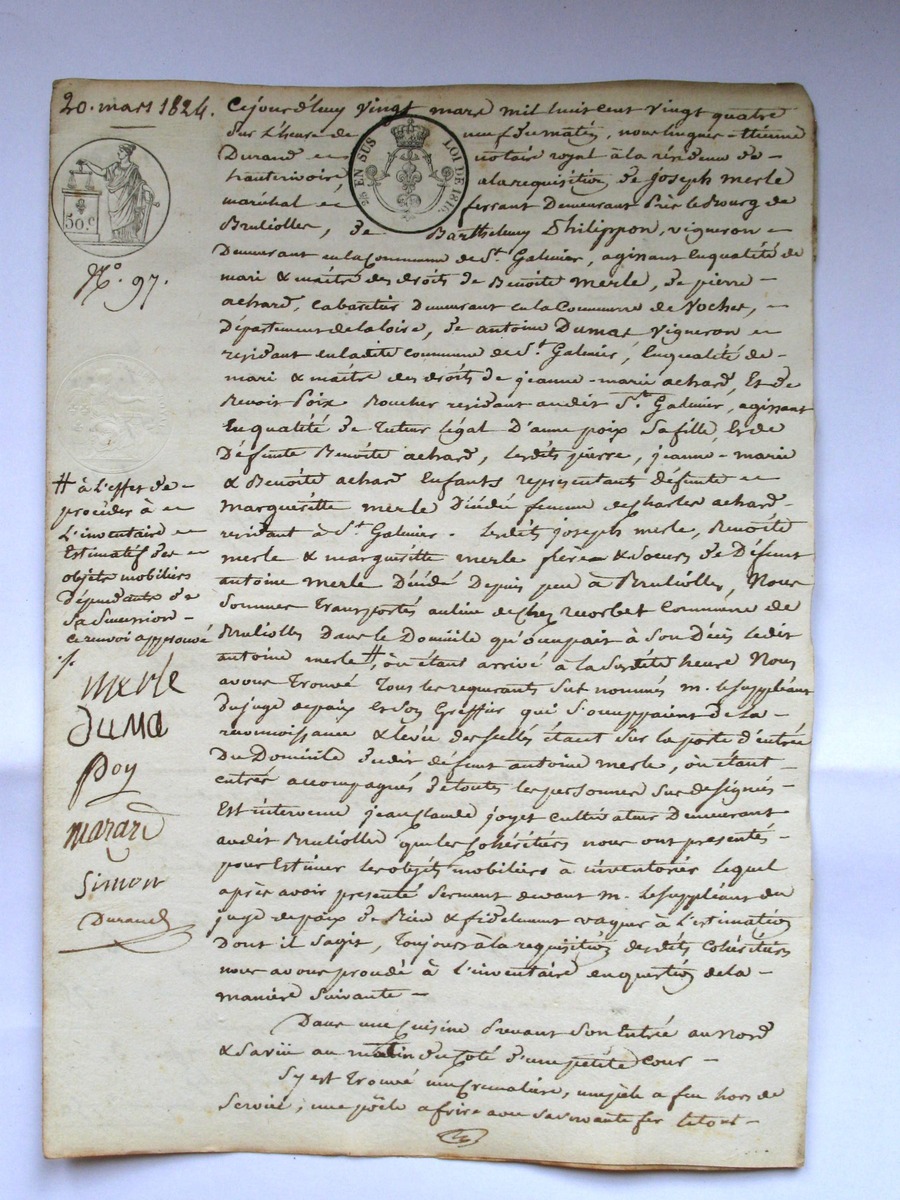 20. mars 1824.
50 c
N.° 97.
25 EN SUS LOI DE 1816.
Cejourd'huy vingt mars mil huit cent vingt quatre
sur l'heure de neuf du matin, nous Etienne
Durand notaire royal à la résidence de
hauterivoire a la requisition de joseph merle
maréhal ferrant Demeurant près le Bourg de
Brulioles, de Barthelemy Philippon, vigneron
Demeurant en la Commune de St. Galmier, agissant En qualité de
mari & maître des droits de Benoite merle, de pierre
achard, cabaretier Demeurant en la Commune de
Département de la loire, de antoine Dumas vigneron
residant en ladite commune de St. Galmier, En qualité de
mari & maître des droits de jeanne-marie achard, Et de
Benoit Poix Boucher residant audit St. Galmier, agissant
En qualité de Tuteur légal D'anne poix sa fille, & de
Défunte Benoite achard, lesdits pierre, jeanne-marie
& Benoîte achard Enfants representant défunte
margueritte merle Décédé femme de charles achard
residant à St. Galmier. Lesdits joseph merle, Benoite
merle & margueritte merle frere & soeurs de Défunt
antoine merle Décédé Depuis peu à Brulioles, Nous
Sommes Transportés au lieu de chez Commune de
Brulioles Dans le Domicile qu'occupait à Son Décès ledit
antoine merle #, où étant arrivé à la Susdite heure Nous
avons Trouvé Tous les requerants Sus nommés m. le suppléant
du juge de paix et son Greffier qui S'occuppaient de la
reconnoissance & levée des scellés étant Sur la porte d'entrée
Du Domicile dudit défunt antoine merle, où étant
entrés accompagnés de toutes les personnes Sus designés
Est intervenu jean Claude joyet cultivateur Demeurant
audit Brulliolle que les Cohéritiers nous ont presenté
pour Estimer les objets mobiliers à inventorier lequel
après avoir presenté Serment devant m. le suppléant du
juge de paix de Bien & fidelement vaquer à l'estimation
Dont il sagit, Toujours à la requisition desdits Cohéritiers
nous avons procédé à l'inventaire en question de la
maniere Suivante
Dans une Cuisine Prenant Son Entrée au Nord
& au matin du Coté d'une petite Cour
S'y est Trouvé une Cremalière, une pèle a feu hors de
Service, une pöele a frire
# à L'effet de
procéder à
L'inventaire
Estimatif des
objets mobiliers
dépendants de
sa Succession
ce renvoi approuvé
merle
Duma
Poy
marard
Simon
Durand